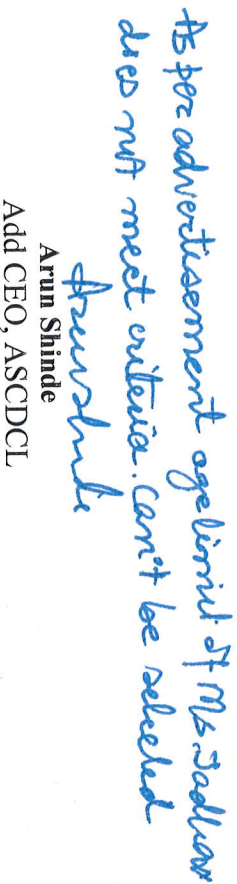 As per advertisement age limit of Ms. Jadhav
does not meet criteria. Can't be selected
Arunshinde
Arun Shinde
Add CEO, ASCDCL